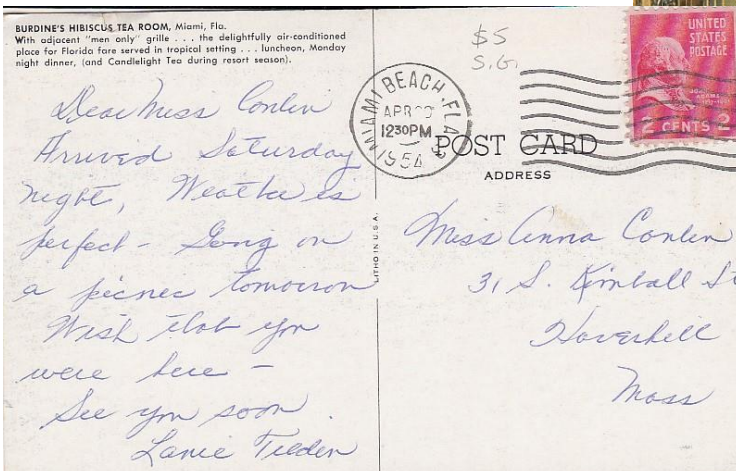 BURDINE'S HIBISCUS TEA ROOM, Miami, Fla.
With adjacent "men only" grille . . . the delightfully air-conditioned
place for Florida fare served in tropical setting . . . luncheon, Monday
night dinner, (and Candlelight Tea during resort season).
Dear Miss Conlin
Arrived Saturday
night, Weather is
perfect - Going on
a picnic tomorrow
Wish that you
were here -
See you soon.
Lanie Tilden
LITHO IN U.S.A.
$5
S.G.
MIAMI BEACH, FLA.
APR
1230PM
1954
UNITED
STATES
POSTAGE
JOHN
ADAMS
2 CENTS 2
POST CARD
ADDRESS
Miss Anna Conlin
31 S. Kimball St
Haverhill
Mass